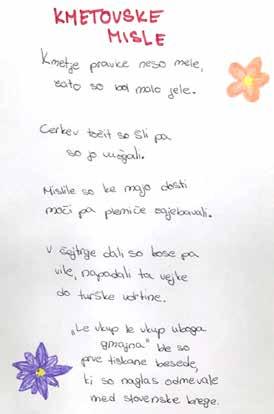 KMETOVSKE
MISLE
Kmetje pravice neso mele,
zato so bol malo jele.
Cerkev točit so šli pa
so jo užgali.
Mislile so ke majo dosti
moči pa plemiče zajebavali.
V šejtrge dali so kose pa
vile, napadali ta vejke
do turške udrtine.
"Le vkup le vkup uboga
gmajna" ble so
prve tiskane besede,
ki so naglas odmevale
med slovenske brege.